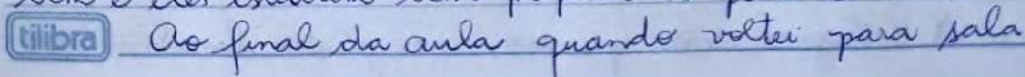 tilibra Ao final da aula quando voltei para sala